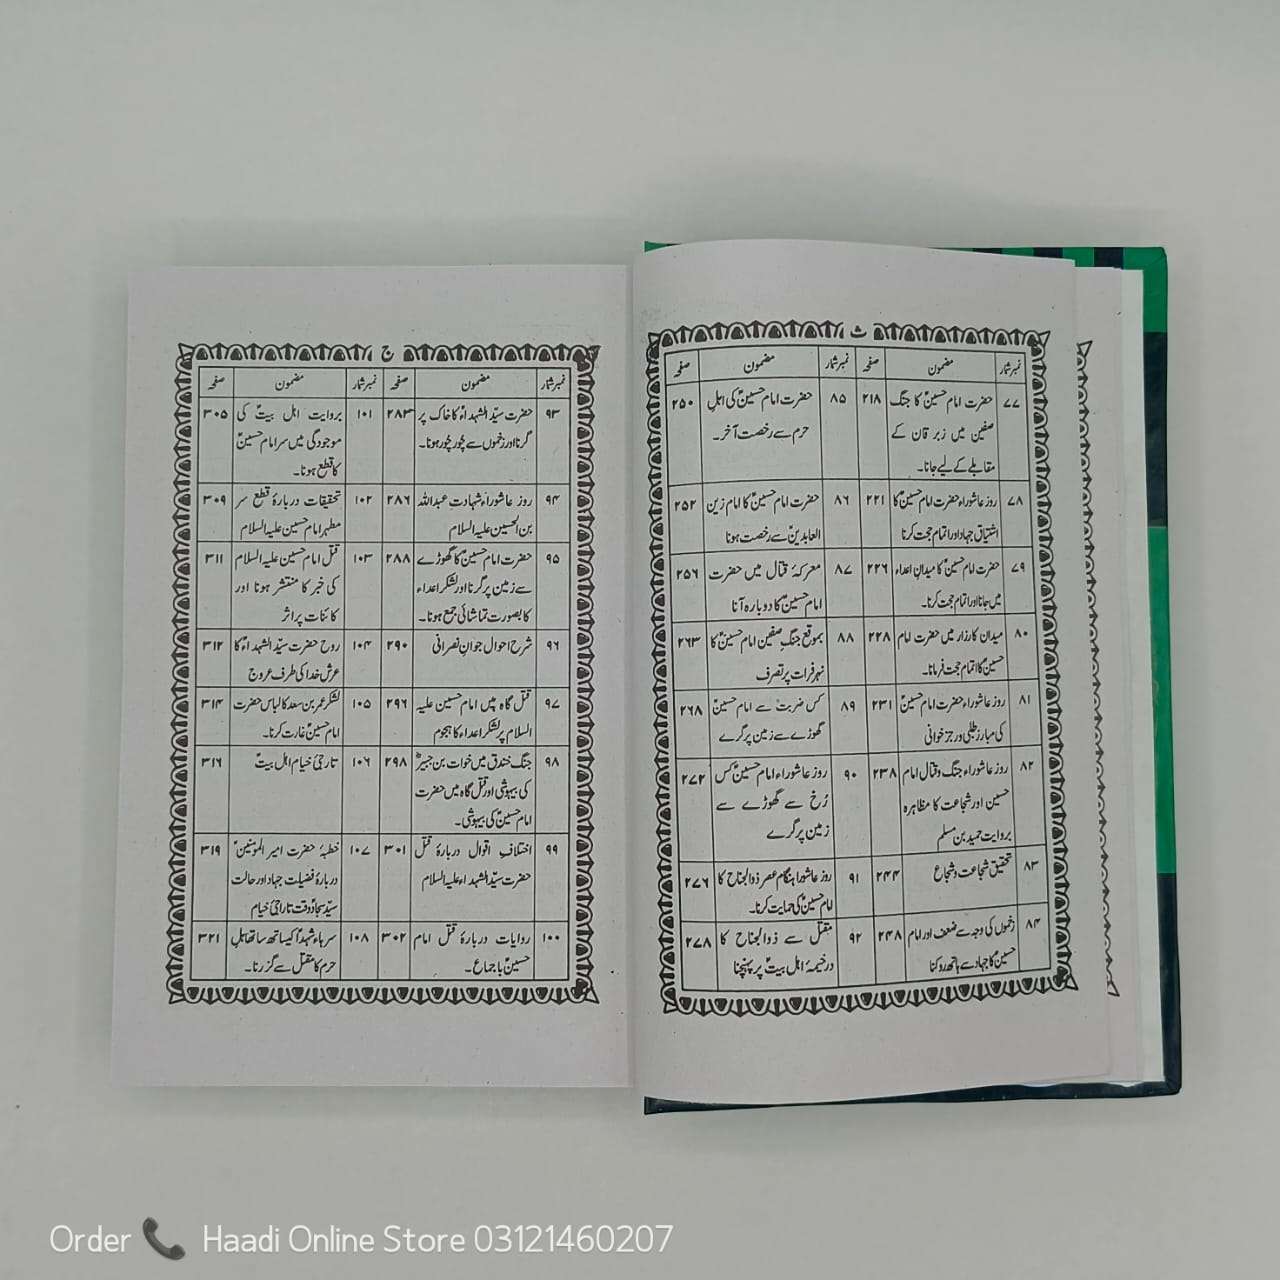 ث
نمبر شمار مضمون صفحہ نمبر شمار مضمون صفحہ
۷۷ حضرت امام حسینؑ کا جنگ ۲۱۸
صفین میں زبرقان کے
مقابلے کے لیے جانا۔
۷۸ روز عاشوراء حضرت امام حسینؑ کا ۲۲۱
اشتیاق جہاد اور اتمام حجت کرنا
۷۹ حضرت امام حسینؑ کا میدانِ اعداء ۲۲۶
میں جانا اور اتمام حجت کرنا۔
۸۰ میدان کارزار میں حضرت امام ۲۲۸
حسینؑ کا اتمام حجت فرمانا۔
۸۱ روز عاشوراء حضرت امام حسینؑ ۲۳۱
کی مبارز طلبی و رجز خوانی
۸۲ روز عاشوراء جنگ و قتال امام ۲۳۸
حسین اور شجاعت کا مظاہرہ
بروایت حمید بن مسلم
۸۳ تحقیق شجاعت و شجاع ۲۴۴
۸۴ زخموں کی وجہ سے ضعف اور امام ۲۴۸
حسینؑ کا جہاد سے ہاتھ روکنا
۸۵ حضرت امام حسینؑ کی اہلِ ۲۵۰
حرم سے رخصت آخر۔
۸۶ حضرت امام حسینؑ کا امام زین ۲۵۲
العابدینؑ سے رخصت ہونا
۸۷ معرکۂ قتال میں حضرت ۲۵۶
امام حسینؑ کا دوبارہ آنا
۸۸ بموقع جنگِ صفین امام حسینؑ کا ۲۶۳
نہر فرات پر تصرف
۸۹ کس ضربت سے امام حسینؑ ۲۶۸
گھوڑے سے زمین پر گرے
۹۰ روز عاشوراء امام حسینؑ کس ۲۷۲
رُخ سے گھوڑے سے
زمین پر گرے
۹۱ روز عاشورا ہنگام عصر ذوالجناح کا ۲۷۶
امام حسینؑ کی حمایت کرنا۔
۹۲ مقتل سے ذوالجناح کا ۲۷۸
در خیمۂ اہل بیتؑ پر پہنچنا
ج
نمبر شمار مضمون صفحہ نمبر شمار مضمون صفحہ
۹۳ حضرت سیّد الشہداءؑ کا خاک پر ۲۸۳
گرنا اور زخموں سے چُور چُور ہونا۔
۹۴ روز عاشوراء شہادت عبداللہ ۲۸۶
بن الحسین علیہ السلام
۹۵ حضرت امام حسینؑ کا گھوڑے ۲۸۸
سے زمین پر گرنا اور لشکر اعداء
کا بصورت تماشائی جمع ہونا۔
۹۶ شرح احوال جوانِ نصرانی ۲۹۰
۹۷ قتل گاہ میں امام حسین علیہ ۲۹۶
السلام پر لشکر اعداء کا ہجوم
۹۸ جنگ خندق میں خوات بن جبیرؓ ۲۹۸
کی بیہوشی اور قتل گاہ میں حضرت
امام حسینؑ کی بیہوشی۔
۹۹ اختلافِ اقوال دربارۂ قتل ۳۰۱
حضرت سیّد الشہداء علیہ السلام
۱۰۰ روایات دربارۂ قتل امام ۳۰۲
حسینؑ با جماع۔
۱۰۱ بروایت اہل بیتؑ کی ۳۰۵
موجودگی میں سر امام حسینؑ
کا قطع ہونا۔
۱۰۲ تحقیقات دربارۂ قطع سر ۳۰۹
مطہر امام حسین علیہ السلام
۱۰۳ قتل امام حسین علیہ السلام ۳۱۱
کی خبر کا منتشر ہونا اور
کائنات پر اثر
۱۰۴ روح حضرت سیّد الشہداءؑ کا ۳۱۲
عرش خدا کی طرف عروج
۱۰۵ لشکر عمر بن سعد کا لباس حضرت ۳۱۴
امام حسینؑ غارت کرنا۔
۱۰۶ تاراجیٔ خیام اہل بیتؑ ۳۱۶
۱۰۷ خطبۂ حضرت امیر المومنینؑ ۳۱۹
دربارۂ فضیلت جہاد اور حالت
سیّد سجادؑ وقت تاراجیٔ خیام
۱۰۸ سرہاء شہداؑ کیساتھ ساتھ اہل ۳۲۱
حرم کا مقتل سے گزرنا۔
Order 📞 Haadi Online Store 03121460207